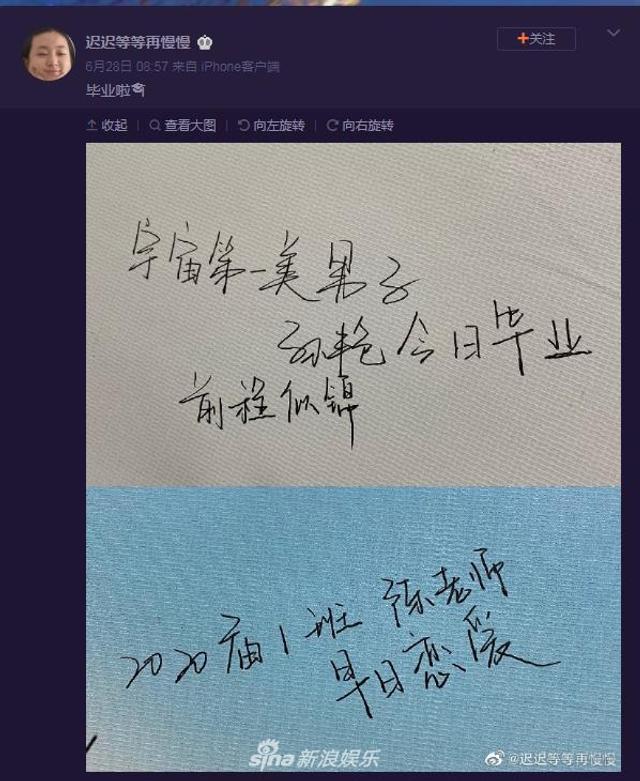 迟迟等等再慢慢
+关注
6月28日 08:57 来自 iPhone客户端
毕业啦
收起 查看大图 向左旋转 向右旋转
宇宙第一美男子
孙艳今日毕业
前程似锦
2020届1班 陈老师
早日恋爱
sina新浪娱乐
@迟迟等等再慢慢